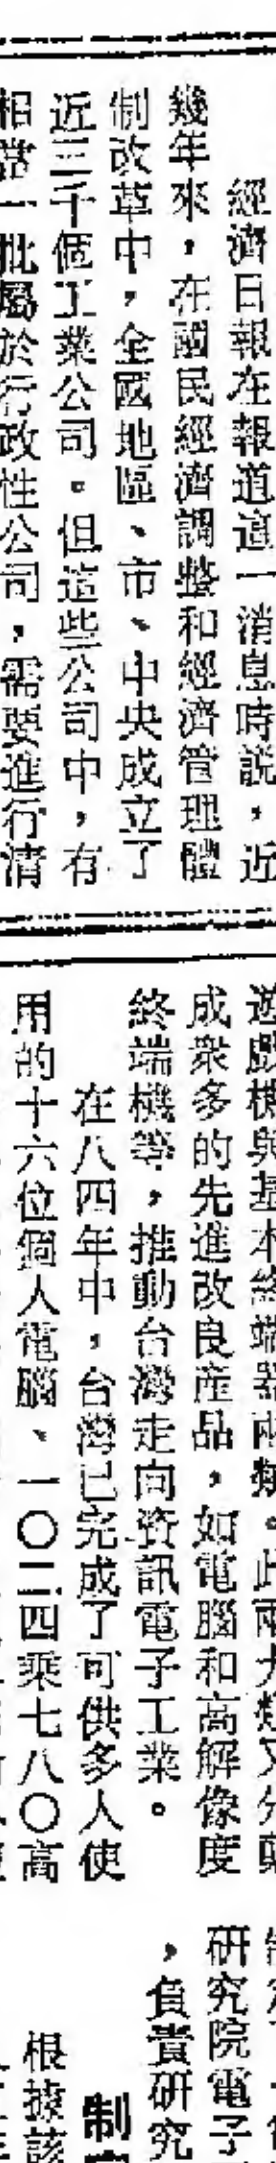 經濟日報在報道這一消息時說，近
幾年來，在國民經濟調整和經濟管理體
制改革中，全國地區、市、中央成立了
近三千個工業公司。但這些公司中，有
相當一批屬於行政性公司，需要進行清
遊戲機與基本終端器兩類。此兩大類又分
成衆多的先進改良産品，如電腦和高解像度
終端機等，推動台灣走向資訊電子工業。
在八四年中，台灣已完成了可供多人使
用的十六位個人電腦、一〇二四乘七八〇高
研究院電子
，負責研究
制
根據該